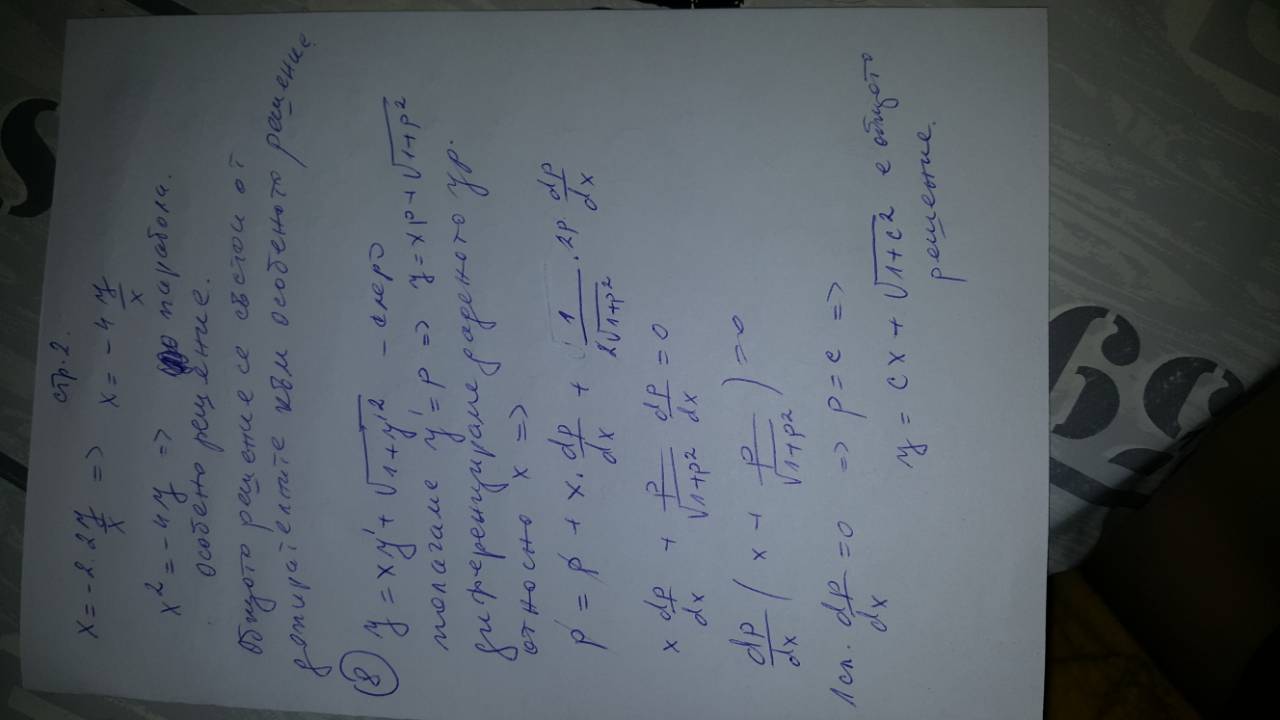 стр. 2.
x = -2. 2y/x => x = -4 y/x
x² = -4y => парабола.
особено решение.
Общото решение се състои от
допирателните към особеното решение.
8 y = xy' + √1+y'² - Клеро
полагаме y' = p => y = xp + √1+p²
диференцираме даденото ур.
относно x =>
p = p + x. dp/dx + 1/2√1+p² . 2p. dp/dx
x dp/dx + p/√1+p² dp/dx = 0
dp/dx ( x + p/√1+p² ) = 0
1 сл. dp/dx = 0 => p = c =>
y = cx + √1+c² е общото
решение.